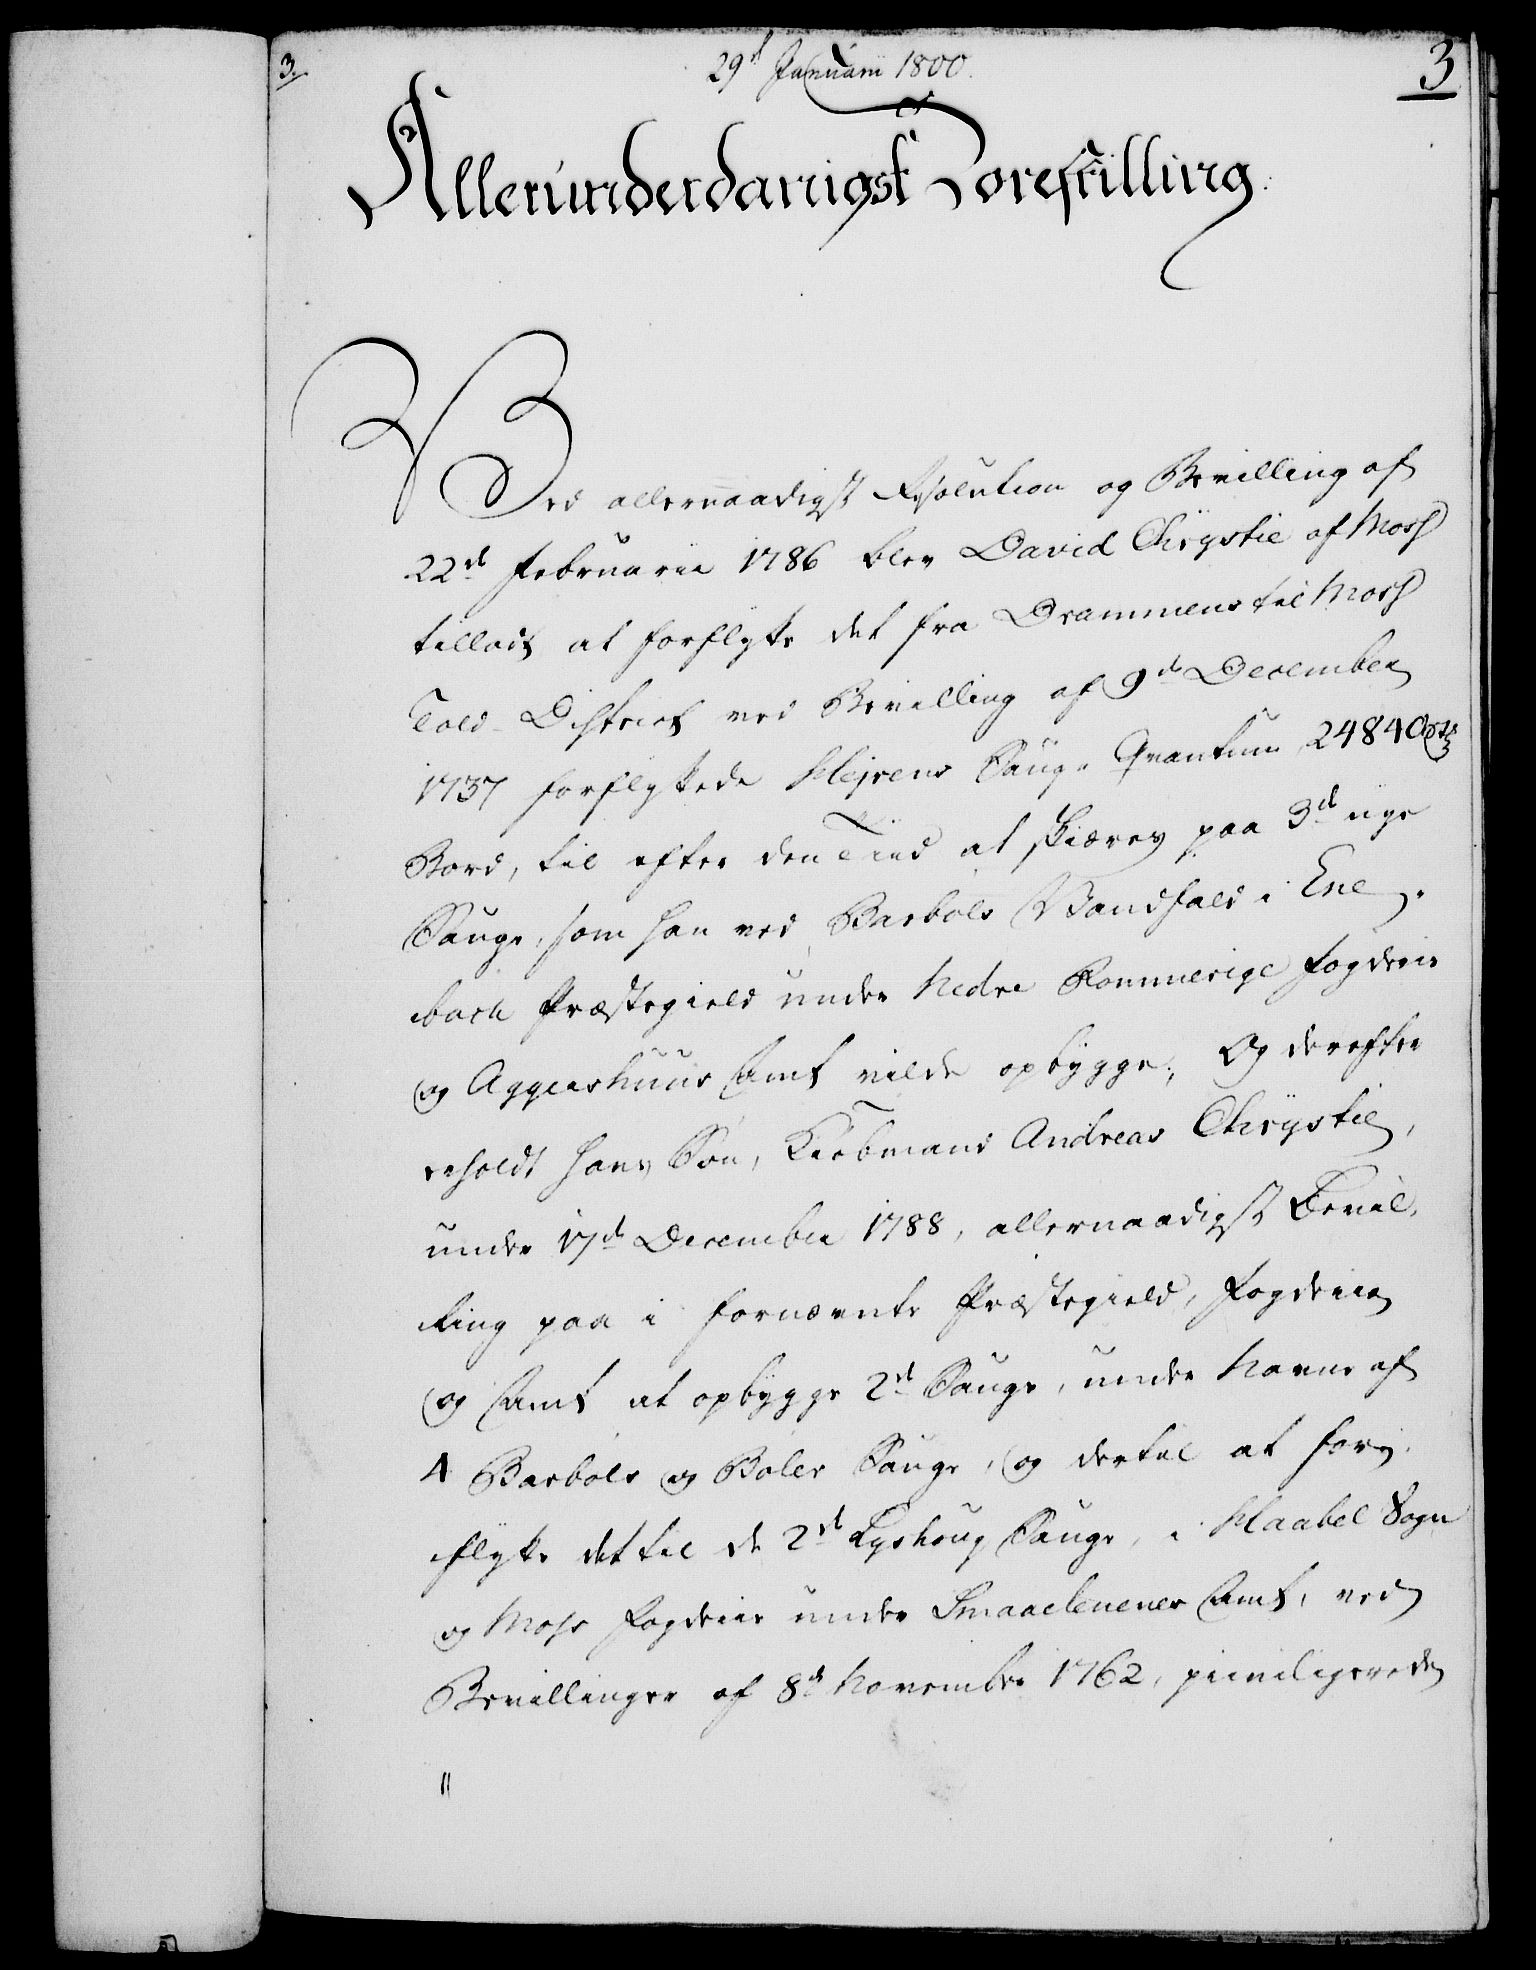 3.
29d Januarii 1800.
3
Allerunderdanigst Forestilling.
Ved allernaadigst Resolution og Bevilling af
22d Februarii 1786 blev David Chrystie af Moss
tilladt at forflytte det fra Drammens til Moss
Told-District ved Bevilling af 9d December
1737 forflyttede Saugs Qvantum 2484
Bord, til efter den Tiid at skiæres paa 3d nye
Sauge, som han ved Barbøls Vandfald i Ene-
bach Præstegield under Nedre Rommerige Fogderie
og Aggershuus Amt vilde opbygge; Og derefter
erholdt hans Søn, Kiøbmand Andreas Chrystie,
under 17d December 1788, allernaadigst Bevil-
ling paa i fornævnte Præstegield, Fogderie
og Amt at opbygge 2d Sauge, under Navne af
4 Barbøls og Bøler Sauge, og dertil at for-
flytte det til de 2d Sauge, i Haabel Sogn
og Moss Fogderie under Smaaelenenes Amt, ved
Bevillinger af 8d November 1762, priviligerede
"